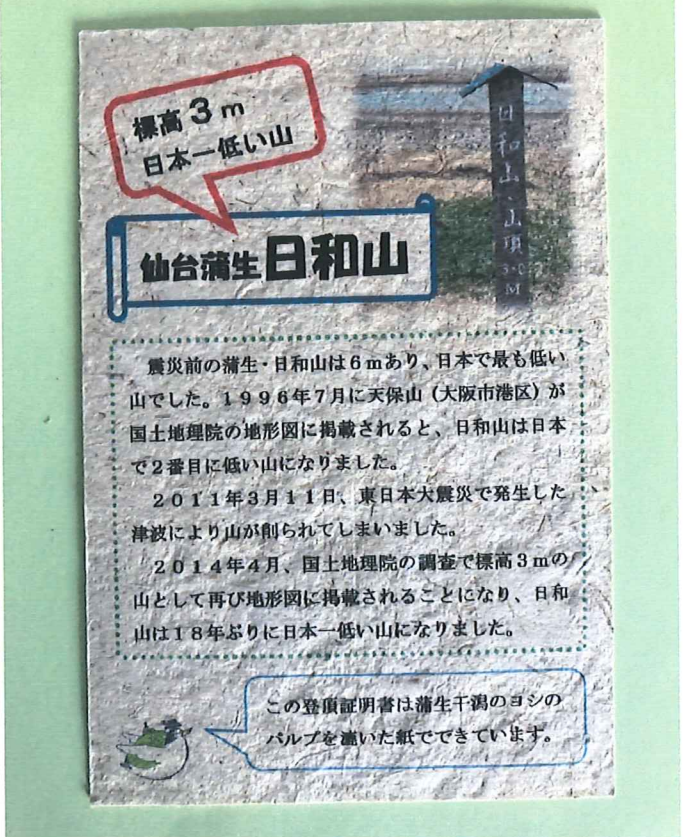 標高3m
日本一低い山
日和山・山頂
3.0
M
仙台蒲生日和山
震災前の蒲生・日和山は6mあり、日本で最も低い
山でした。1996年7月に天保山（大阪市港区）が
国土地理院の地形図に掲載されると、日和山は日本
で2番目に低い山になりました。
2011年3月11日、東日本大震災で発生した
津波により山が創られてしまいました。
2014年4月、国土地理院の調査で標高3mの
山として再び地形図に掲載されることになり、日和
山は18年ぶりに日本一低い山になりました。
この登頂証明書は蒲生干潟のヨシの
パルプを漉いた紙でできています。